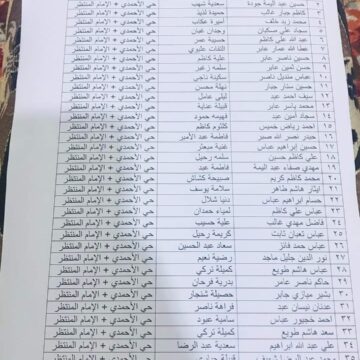 ٢ حسين عبد اليمة جودة سعدية شهيب حي الأحمدي + الإمام المنتظر
٣ كاظم جبار غالب حميدة لذيذ حي الأحمدي + الإمام المنتظر
٤ محمد زيد خلف أميرة عكاب حي الأحمدي + الإمام المنتظر
٥ سجاد علي مسكان وجدان غيان حي الأحمدي + الإمام المنتظر
٦ عبد الله علي كاظم حسيبة عمر حي الأحمدي + الإمام المنتظر
٧ عطا الله عمار عابر التفات عليوي حي الأحمدي + الإمام المنتظر
٨ حسين ناصر عابر علية كاظم حي الأحمدي + الإمام المنتظر
٩ حسين ثمين عابر سلمه زغير حي الأحمدي + الإمام المنتظر
١٠ عباس منديل ناصر سكينة ناجي حي الأحمدي + الإمام المنتظر
١١ حسين ستار جبار نهلة محسن حي الأحمدي + الإمام المنتظر
١٢ سيف احمد عبد ليلى عامل حي الأحمدي + الإمام المنتظر
١٣ محمد ياسر عابر قبيلة عناية حي الأحمدي + الإمام المنتظر
١٤ سجاد أمين عبد فهيمه حمود حي الأحمدي + الإمام المنتظر
١٥ احمد رياض خميس كلثوم كاظم حي الأحمدي + الإمام المنتظر
١٦ حيدر نصر الله ناصر فاطمة عبد الأمير حي الأحمدي + الإمام المنتظر
١٧ حسين إبراهيم عباس غنية مبعثر حي الأحمدي + الإمام المنتظر
١٨ علي كاظم حسين سلمه رحيل حي الأحمدي + الإمام المنتظر
١٩ مهدي صفاء عبد اليمة فاطمة عبد حي الأحمدي + الإمام المنتظر
٢٠ محمد كاظم كريم صبيحة كشاش حي الأحمدي + الإمام المنتظر
٢١ إيثار هاشم طاهر سلامة يوسف حي الأحمدي + الإمام المنتظر
٢٢ حسام ابراهيم عباس دنيا شلال حي الأحمدي + الإمام المنتظر
٢٣ عباس علي كاظم لمياء حمدان حي الأحمدي + الإمام المنتظر
٢٤ فاضل مهدي غالب علية حسيب حي الأحمدي + الإمام المنتظر
٢٥ عباس نعمان ثابت كريمة رحيل حي الأحمدي + الإمام المنتظر
٢٦ عباس حمد فائز سعاد عبد الحسين حي الأحمدي + الإمام المنتظر
٢٧ نور الدين جليل ماجد رضية نعيم حي الأحمدي + الإمام المنتظر
٢٨ عباس هاشم طويع كميلة تركي حي الأحمدي + الإمام المنتظر
٢٩ حاكم ناصر عامر بدرية فرحان حي الأحمدي + الإمام المنتظر
٣٠ بشير مبازي جابر حصيلة شنجار حي الأحمدي + الإمام المنتظر
٣١ عدنان نيسان عبد مرهونة ناصر حي الأحمدي + الإمام المنتظر
٣٢ أحمد حجور عباس سامية عبود حي الأحمدي + الإمام المنتظر
٣٣ سعد هاشم طويع كميلة تركي حي الأحمدي + الإمام المنتظر
٣٤ علي عبد الله ابراهيم سعدية عبد الرضا حي الأحمدي + الإمام المنتظر